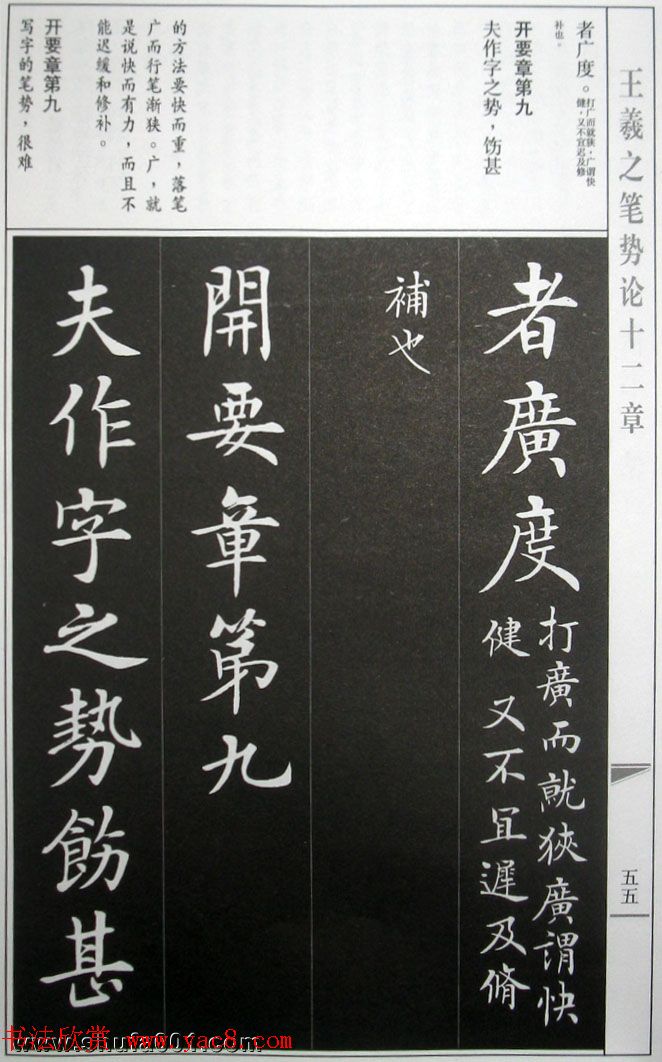 王羲之笔势论十二章
五五
者广度。打广而就狭，广谓快
健，又不宜迟及修
补也。
开要章第九
夫作字之势，饬甚
的方法要快而重，落笔
广而行笔渐狭。广，就
是说快而有力，而且不
能迟缓和修补。
开要章第九
写字的笔势，很难
者廣度打廣而就狹廣謂快
健又不宜遲及脩
補也
開要章第九
夫作字之勢飭甚
书法欣赏 www.yac8.com
www.shufa001.com